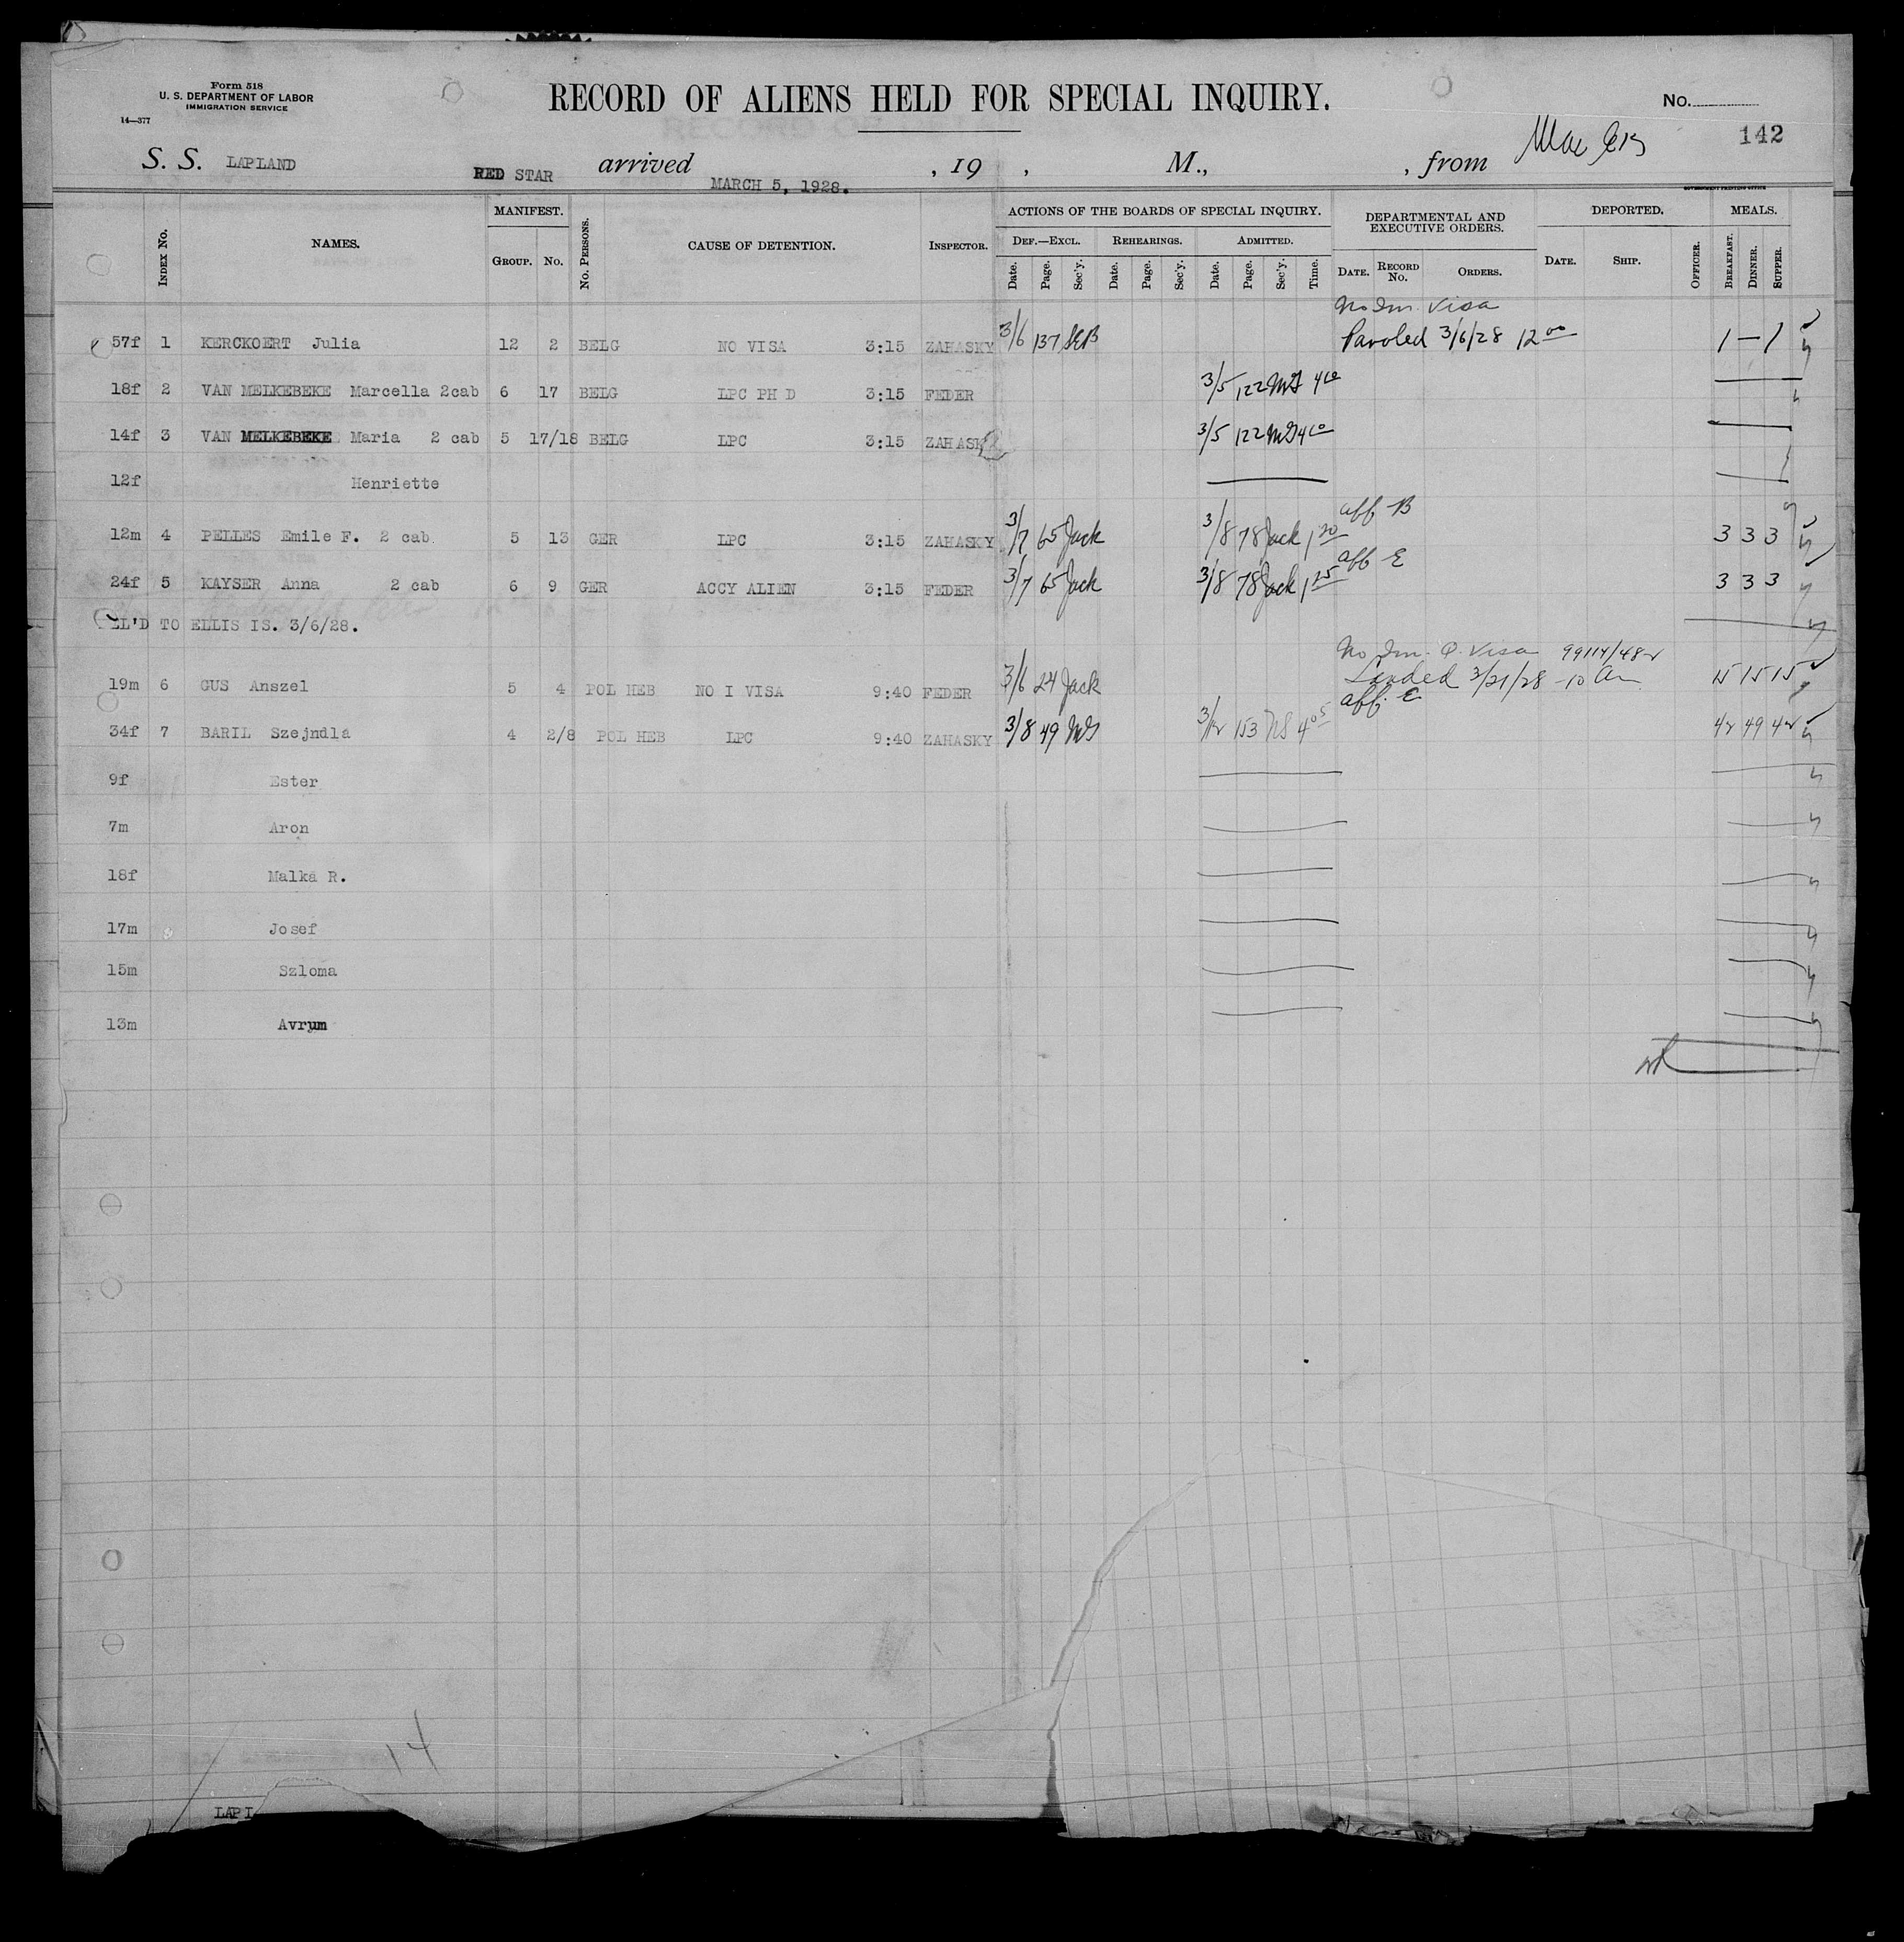 Form 518
U. S. DEPARTMENT OF LABOR
IMMIGRATION SERVICE
14—377
RECORD OF ALIENS HELD FOR SPECIAL INQUIRY.
No.
142
S. S. LAPLAND RED STAR arrived MARCH 5, 1928. , 19 , M., , from
GOVERNMENT PRINTING OFFICE
INDEX No. NAMES. MANIFEST. GROUP. No. No. PERSONS. CAUSE OF DETENTION. INSPECTOR. ACTIONS OF THE BOARDS OF SPECIAL INQUIRY. DEF.—EXCL. Date. Page. Sec'y. REHEARINGS. Date. Page. Sec'y. ADMITTED. Date. Page. Sec'y. Time. DEPARTMENTAL AND EXECUTIVE ORDERS. DATE. RECORD No. ORDERS. DEPORTED. DATE. SHIP. OFFICER. MEALS. BREAKFAST. DINNER. SUPPER.
No Im. Visa
57f 1 KERCKOERT Julia 12 2 BELG NO VISA 3:15 ZAHASKY 3/6 137 SEB Paroled 3/6/28 12 00 1 — 1
18f 2 VAN MELKEBEKE Marcella 2cab 6 17 BELG LPC PH D 3:15 FEDER 3/5 122 MG 4
14f 3 VAN MELKEBEKE Maria 2 cab 5 17/18 BELG LPC 3:15 ZAHASKY 3/5 122 MG 4
12f Henriette
aff B
12m 4 PELLES Emile F. 2 cab 5 13 GER LPC 3:15 ZAHASKY 3/7 65 Jack 3/8 78 Jack 1 20 3 3 3
aff E
24f 5 KAYSER Anna 2 cab 6 9 GER ACCY ALIEN 3:15 FEDER 3/7 65 Jack 3/8 78 Jack 1 25 3 3 3
LL'D TO ELLIS IS. 3/6/28.
No Im. Q. Visa 99114/482
19m 6 GUS Anszel 5 4 POL HEB NO I VISA 9:40 FEDER 3/6 24 Jack Landed 3/21/28 - 10 am 15 15 15
aff. E
34f 7 BARIL Szejndla 4 2/8 POL HEB LPC 9:40 ZAHASKY 3/8 49 MG 3/12 153 4 05 42 49 42
9f Ester
7m Aron
18f Malka R.
17m Josef
15m Szloma
13m Avrum
14
LAPL